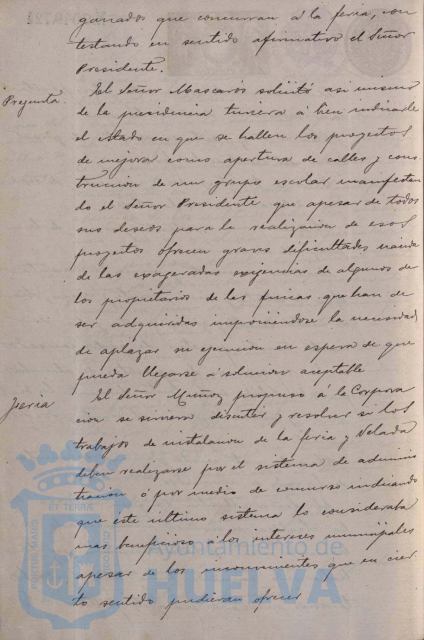 ganados que concurran á la feria, con
testando en sentido afirmativo el Señor
Presidente.
Pregunta
El Señor Mascarós solicitó asi mismo
de la presidencia tuviera á bien indicarle
el estado en que se hallen los proyectos
de mejora como apertura de calles y cons
trucción de un grupo escolar manifestan
do el Señor Presidente que apesar de todos
sus deseos para la realización de esos
proyectos ofrecen graves dificultades nacida
de las exageradas exigencias de algunos de
los propietarios de las fincas que han de
ser adquiridas imponiendose la necesidad
de aplazar su ejecucion en espera de que
pueda llegarse á solucion aceptable
Feria
El Señor Muñoz propuso á la Corpora
cion se sirviera discutir y resolver si los
trabajos de instalacion de la feria y Velada
deben realizarse por el sistema de adminis
tracion ó por medio de concurso indicando
que este ultimo sistema lo consideraba
mas beneficioso á los intereses municipales
apesar de los inconvenientes que en cier
to sentido pudieran ofrecer
Ayuntamiento de
HUELVA